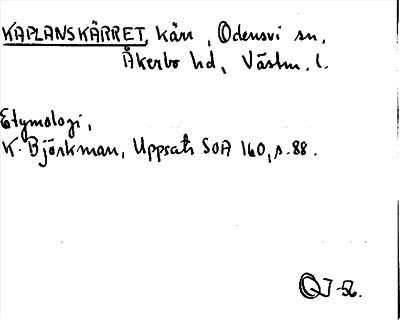 KAPLANSKÄRRET, kärr, Odensvi sn,
Åkerbo hd, Västm. l.
Etymologi,
K. Björkman, Uppsats SOA 160, s. 88.
QJ-56.